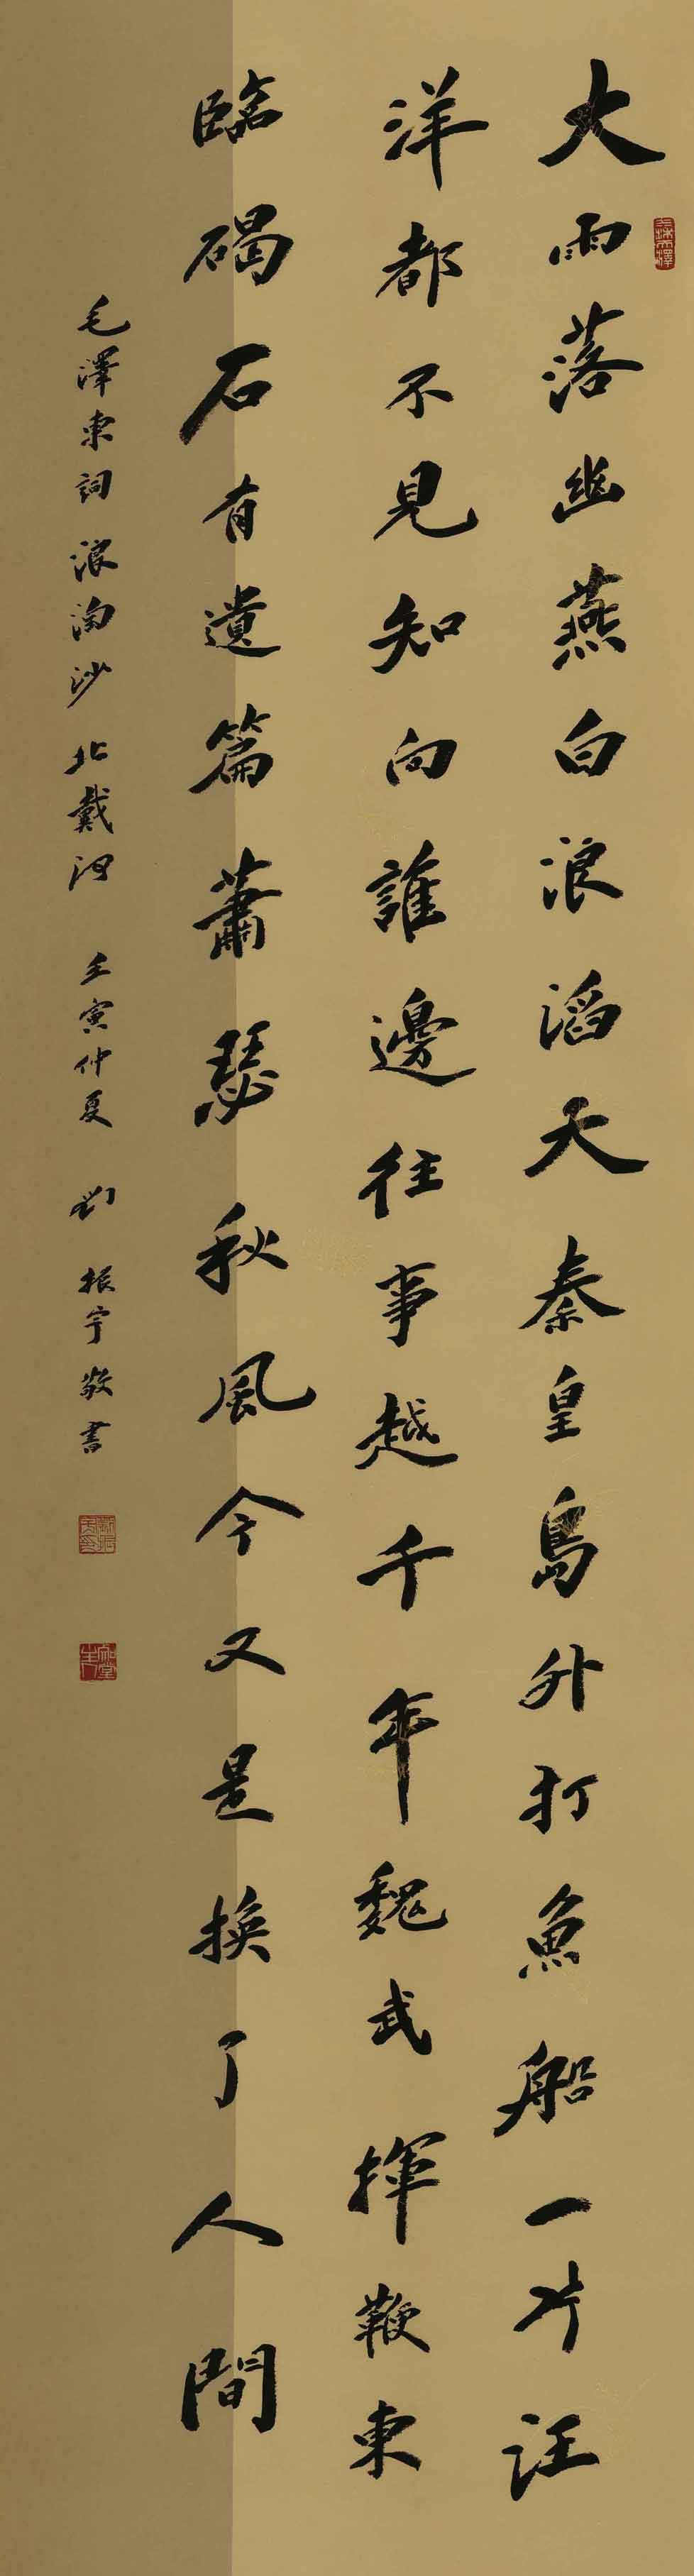 大雨落幽燕白浪滔天秦皇島外打魚船一片汪
洋都不見知向誰邊往事越千年魏武揮鞭東
臨碣石有遺篇蕭瑟秋風今又是換了人間
毛澤東詞 浪淘沙 北戴河 壬寅仲夏 劉振宇敬書